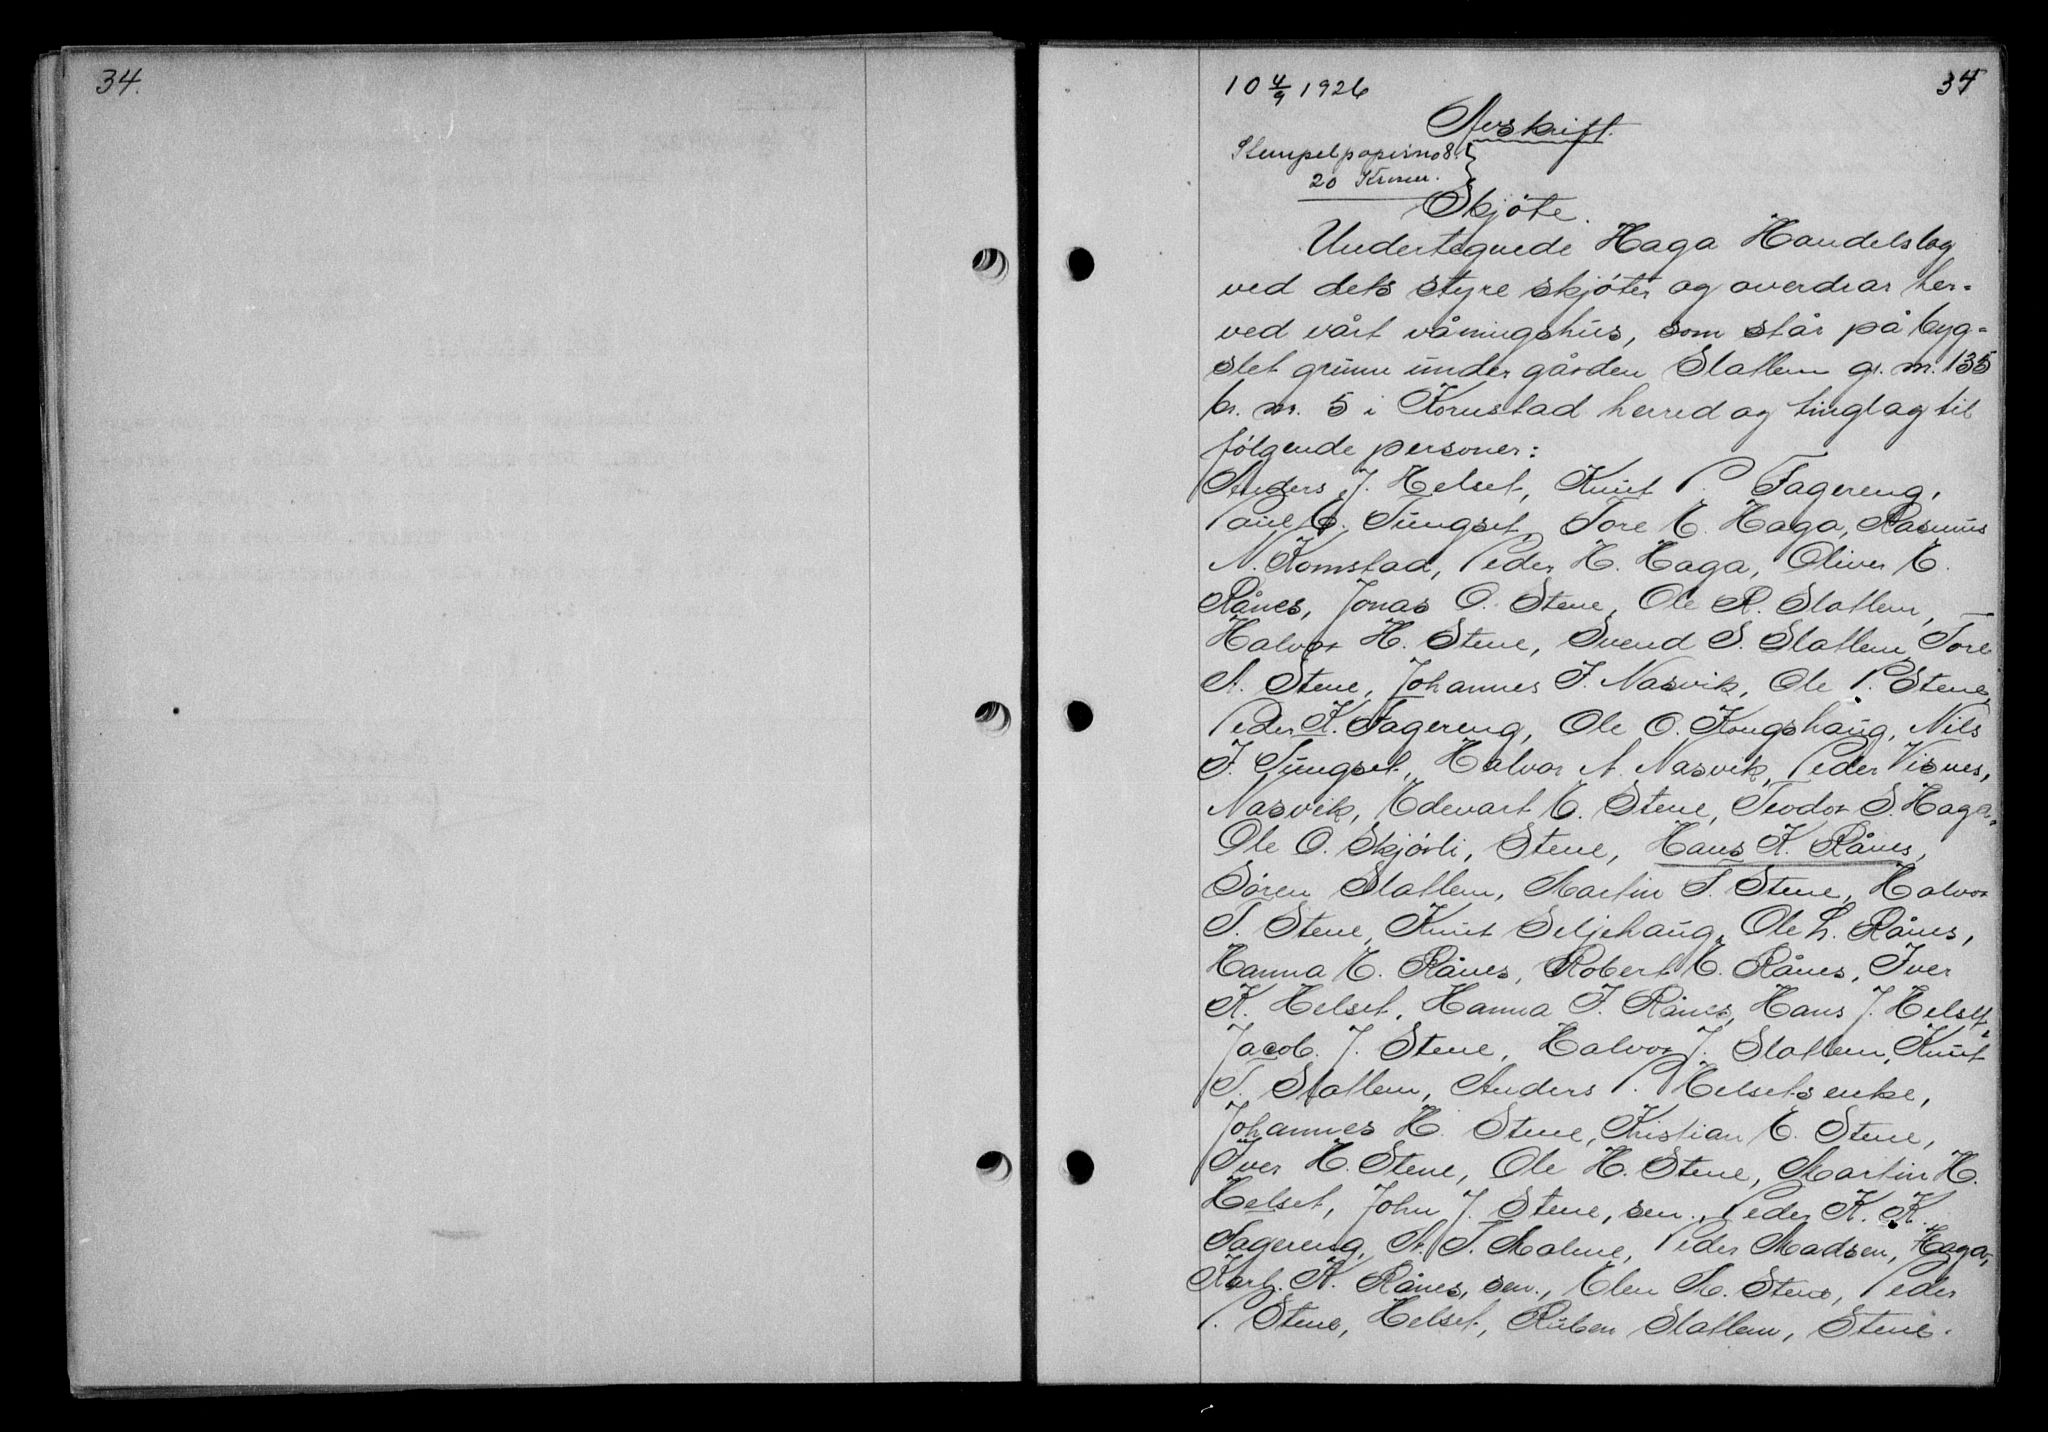 34.
10 4/9 1926
34
Avskrift.
Stempelpapir no 8.
20 Kroner.
Skjøte.
Undertegnede Haga Handelslag
ved dets styre skjøter og overdrar her-
ved vårt våningshus, som står på byg-
slet grunn under gården Slatlem gr. nr. 135
br. nr. 5 i Kornstad herred og tinglag til
følgende personer:
Anders J. Helset, Knut P. Fagereng,
Paul E. Tungset, Tore E. Haga, Rasmus
N. Komstad, Peder H. Haga, Oliver E.
Rånes, Jonas O. Stene, Ole R. Slatlem,
Halvor H. Stene, Svend S. Slatlem, Tore
A. Stene, Johannes J. Nasvik, Ole P. Stene,
Peder K. Fagereng, Ole O. Kongshaug, Nils
J. Tungset, Halvor A. Nasvik, Peder Visnes,
Nasvik, Edevart E. Stene, Teodor S. Haga,
Ole O. Skjørli, Stene, Hans K. Rånes,
Søren Slatlem, Martin T. Stene, Halvor
T. Stene, Knut Seljehaug, Ole L. Rånes,
Hanna E. Rånes, Robert E. Rånes, Iver
K. Helset, Hanna I. Rånes, Hans J. Helset,
Jacob. J. Stene, Halvor J. Slatlem, Knut
T. Slatlem, Anders P. Helsets enke,
Johannes H. Stene, Kristian E. Stene,
Iver H. Stene, Ole H. Stene, Martin H.
Helset, John J. Stene, sen., Peder K. K.
Fagereng, A. T. Malme, Peder Madsen, Haga,
Karl K. Rånes, sen., Elen M. Stene, Peder
P. Stene, Helset, Ruben Slatlem, Stene.